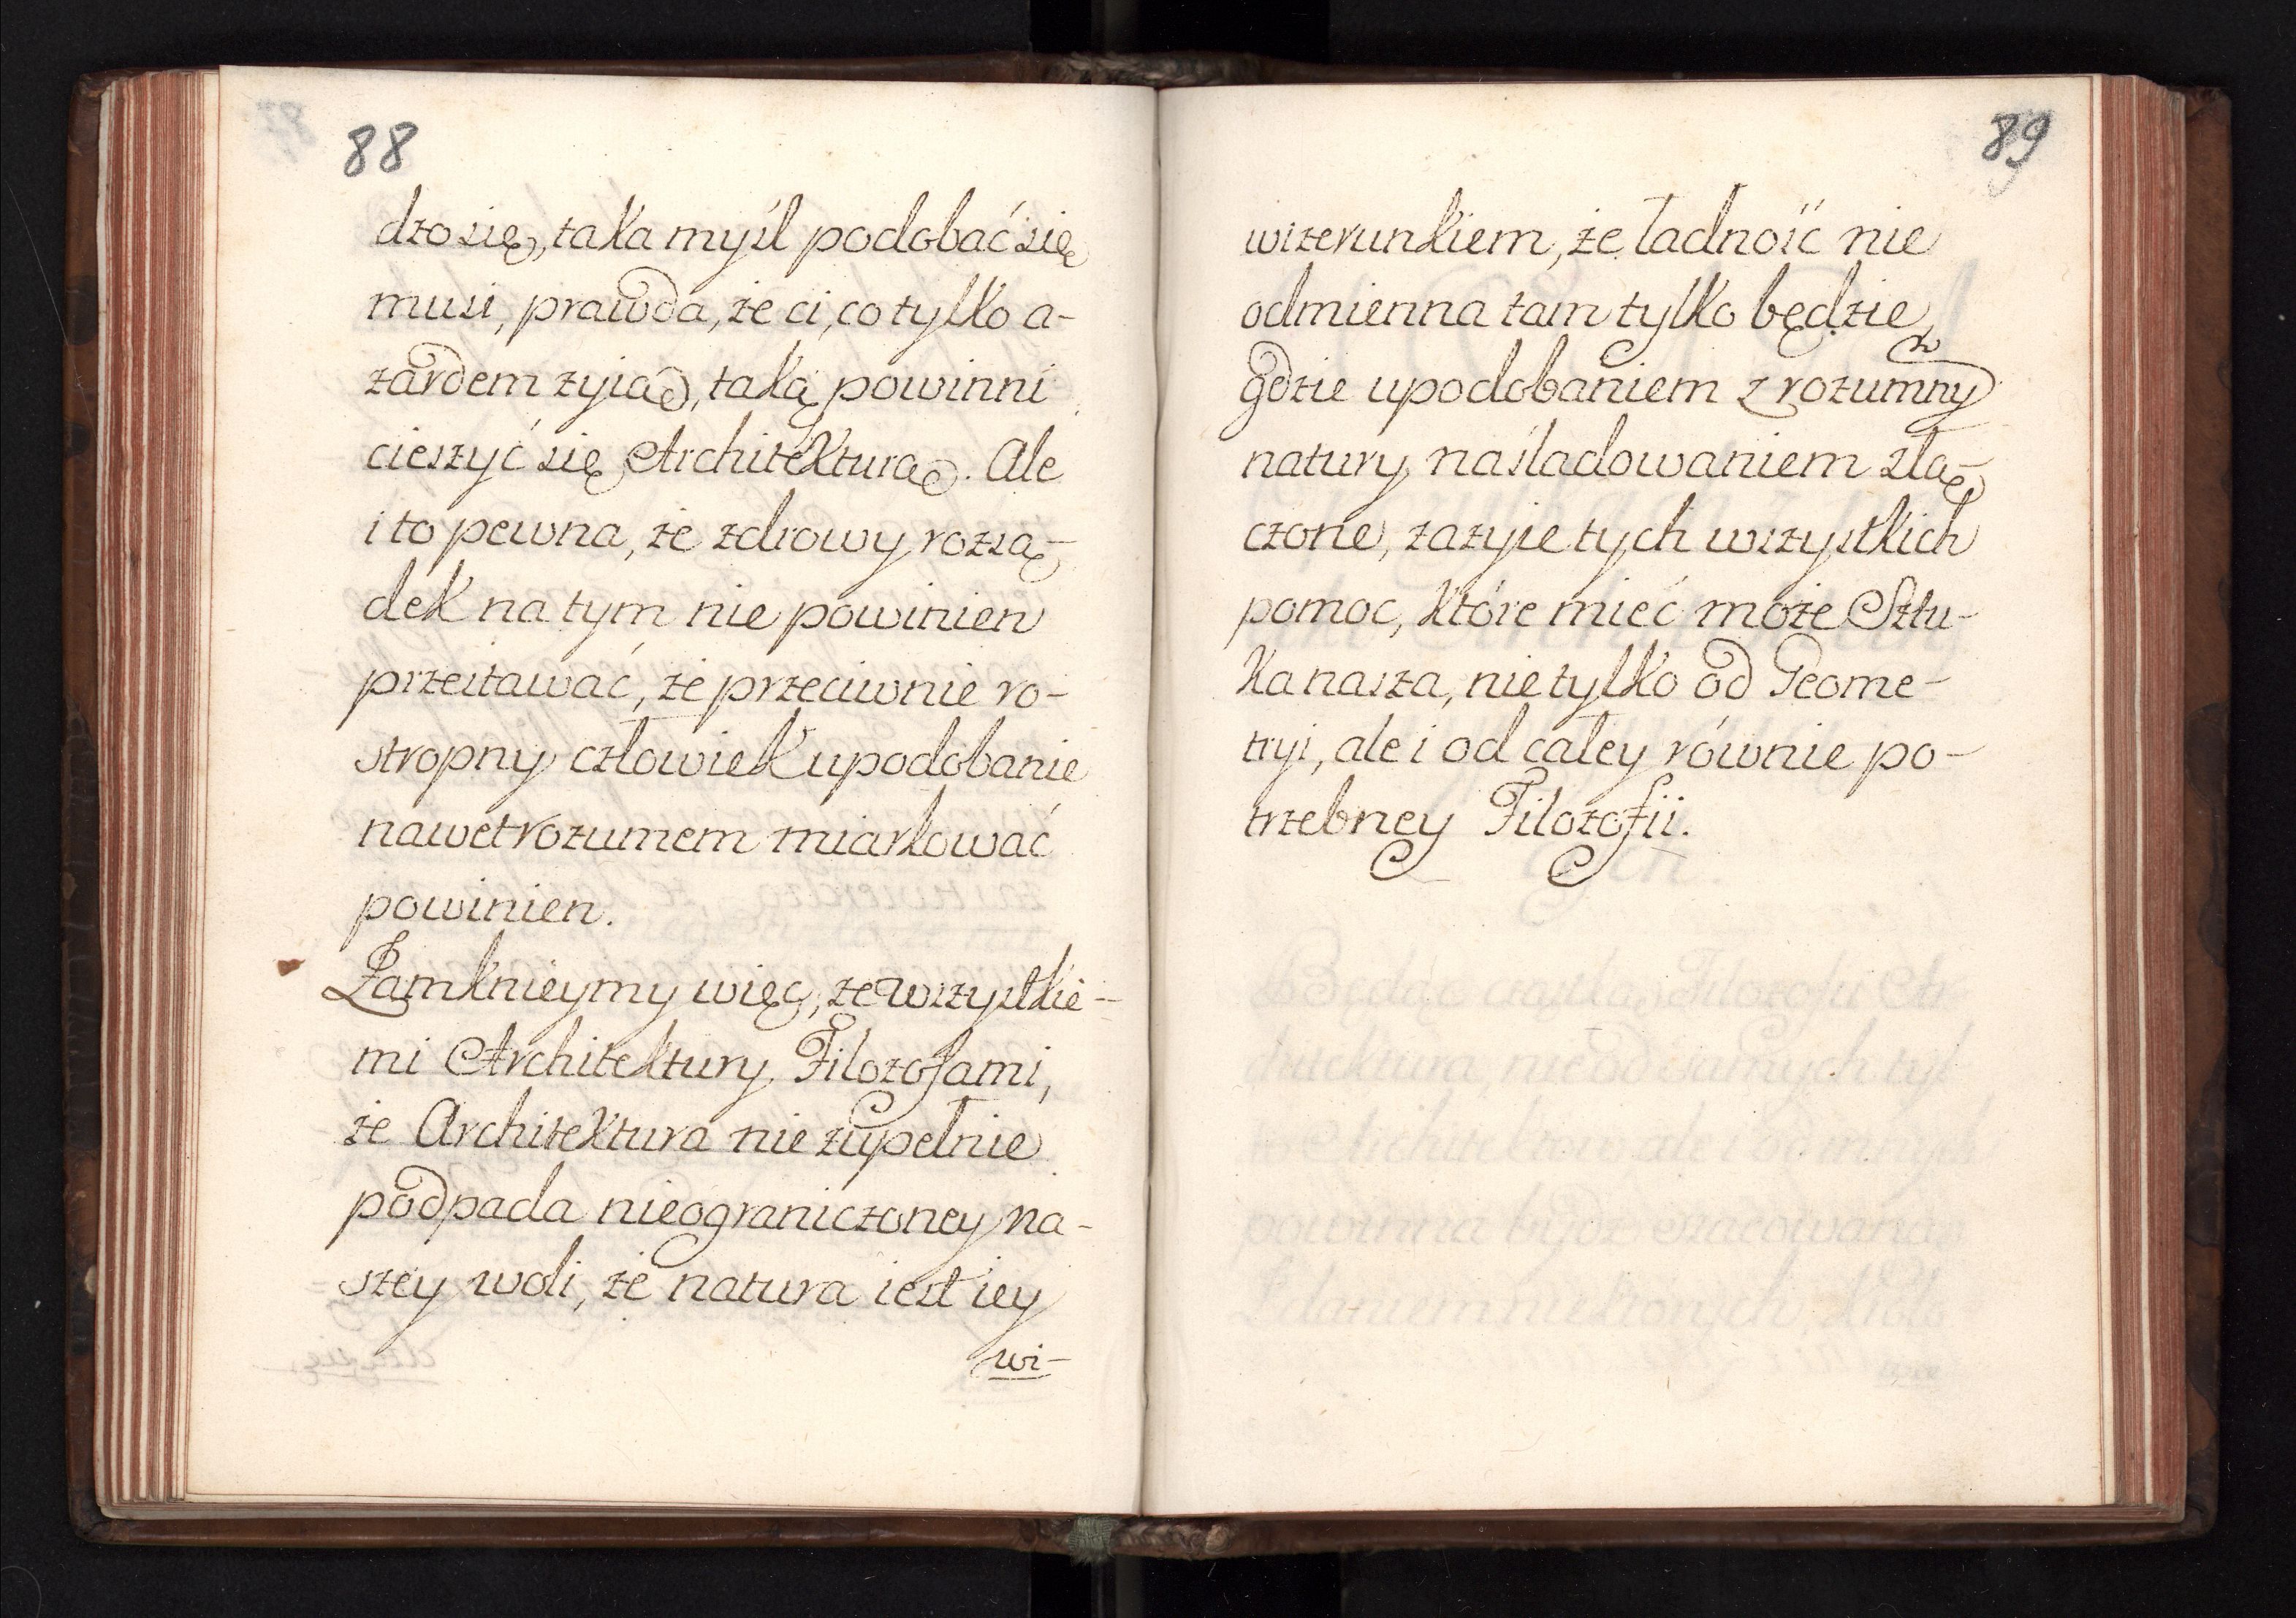 88
dzo się, taka myśl podobać się
musi, prawda, że ci, co tylko a-
zardem zyią, taką powinni
cieszyć się Architekturą. Ale
i to pewna, że zdrowy rozsą-
dek na tym nie powinien
przestawać, że przeciwnie ro-
stropny człowiek upodobanie
nawet rozumem miarkować
powinien.
Zamknieymy więc, ze wszystkie-
mi Architektury Filozofami,
że Architektura nie zupełnie
podpada nieograniczoney na-
szey woli, że natura iest iey
wi-
89
wizerunkiem, że ładność nie
odmienna tam tylko będzie,
gdzie upodobaniem z rozumny
natury naśladowaniem złą-
czone, zazyie tych wszystkich
pomoc, które mieć może Sztu-
ka nasza, nie tylko od Geome-
tryi, ale i od całey równie po-
trzebney Filozofii.